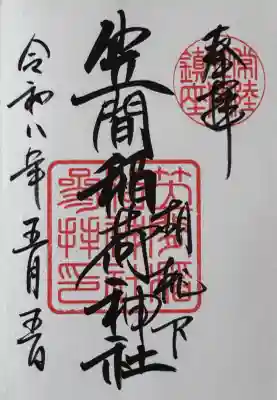 奉拝
常陸
鎮座
胡桃下
笠間稲荷神社
令和八年五月五日